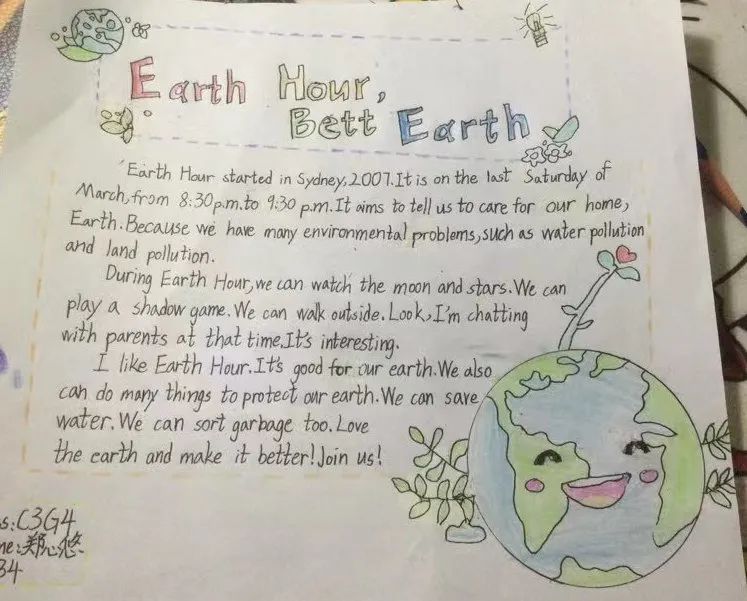 Earth Hour,
Bett Earth
Earth Hour started in Sydney,2007.It is on the last Saturday of
March,from 8:30p.m.to 9:30 p.m.It aims to tell us to care for our home,
Earth.Because we have many environmental problems,such as water pollution
and land pollution.
During Earth Hour,we can watch the moon and stars.We can
play a shadow game.We can walk outside.Look,I'm chatting
with parents at that time.It's interesting.
I like Earth Hour.It's good for our earth.We also
can do many things to protect our earth.We can save
water.We can sort garbage too.Love
the earth and make it better!Join us!
s:C3G4
me:郑心悠
34